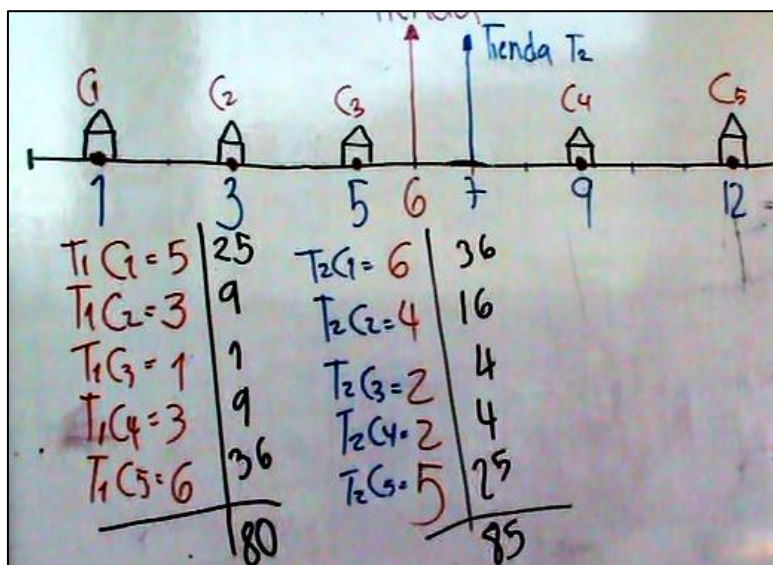 Tienda T2
C1 C2 C3 C4 C5
1 3 5 6 7 9 12
T1C1=5 25
T1C2=3 9
T1C3=1 1
T1C4=3 9
T1C5=6 36
80
T2C1=6 36
T2C2=4 16
T2C3=2 4
T2C4=2 4
T2C5=5 25
85